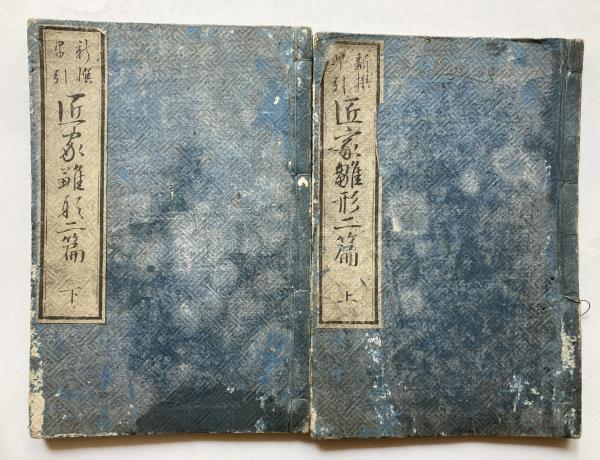 新撰
早引
匠家雛形二篇
上
新撰
早引
匠家雛形二篇
下